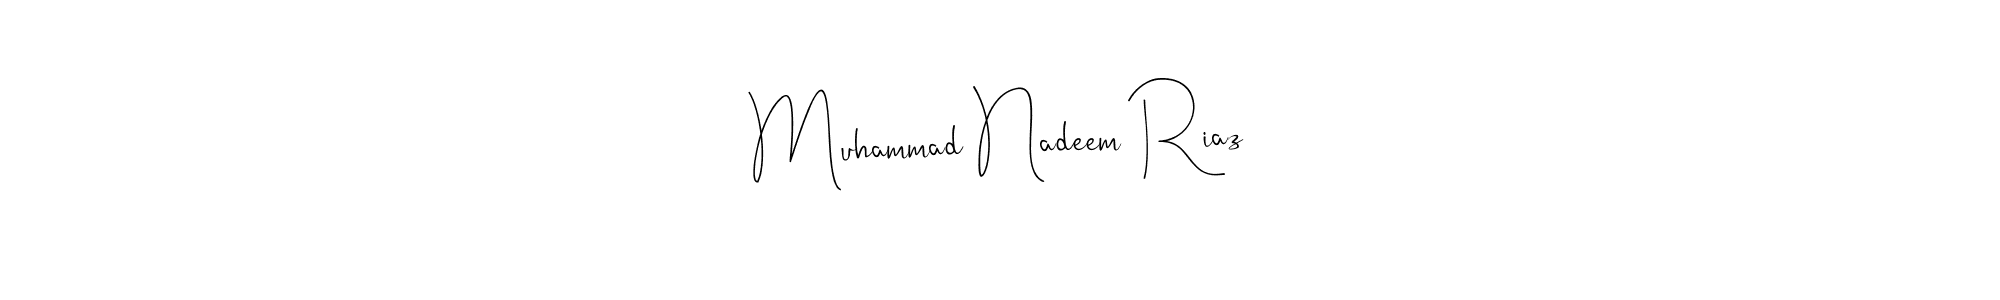 Muhammad Nadeem Riaz